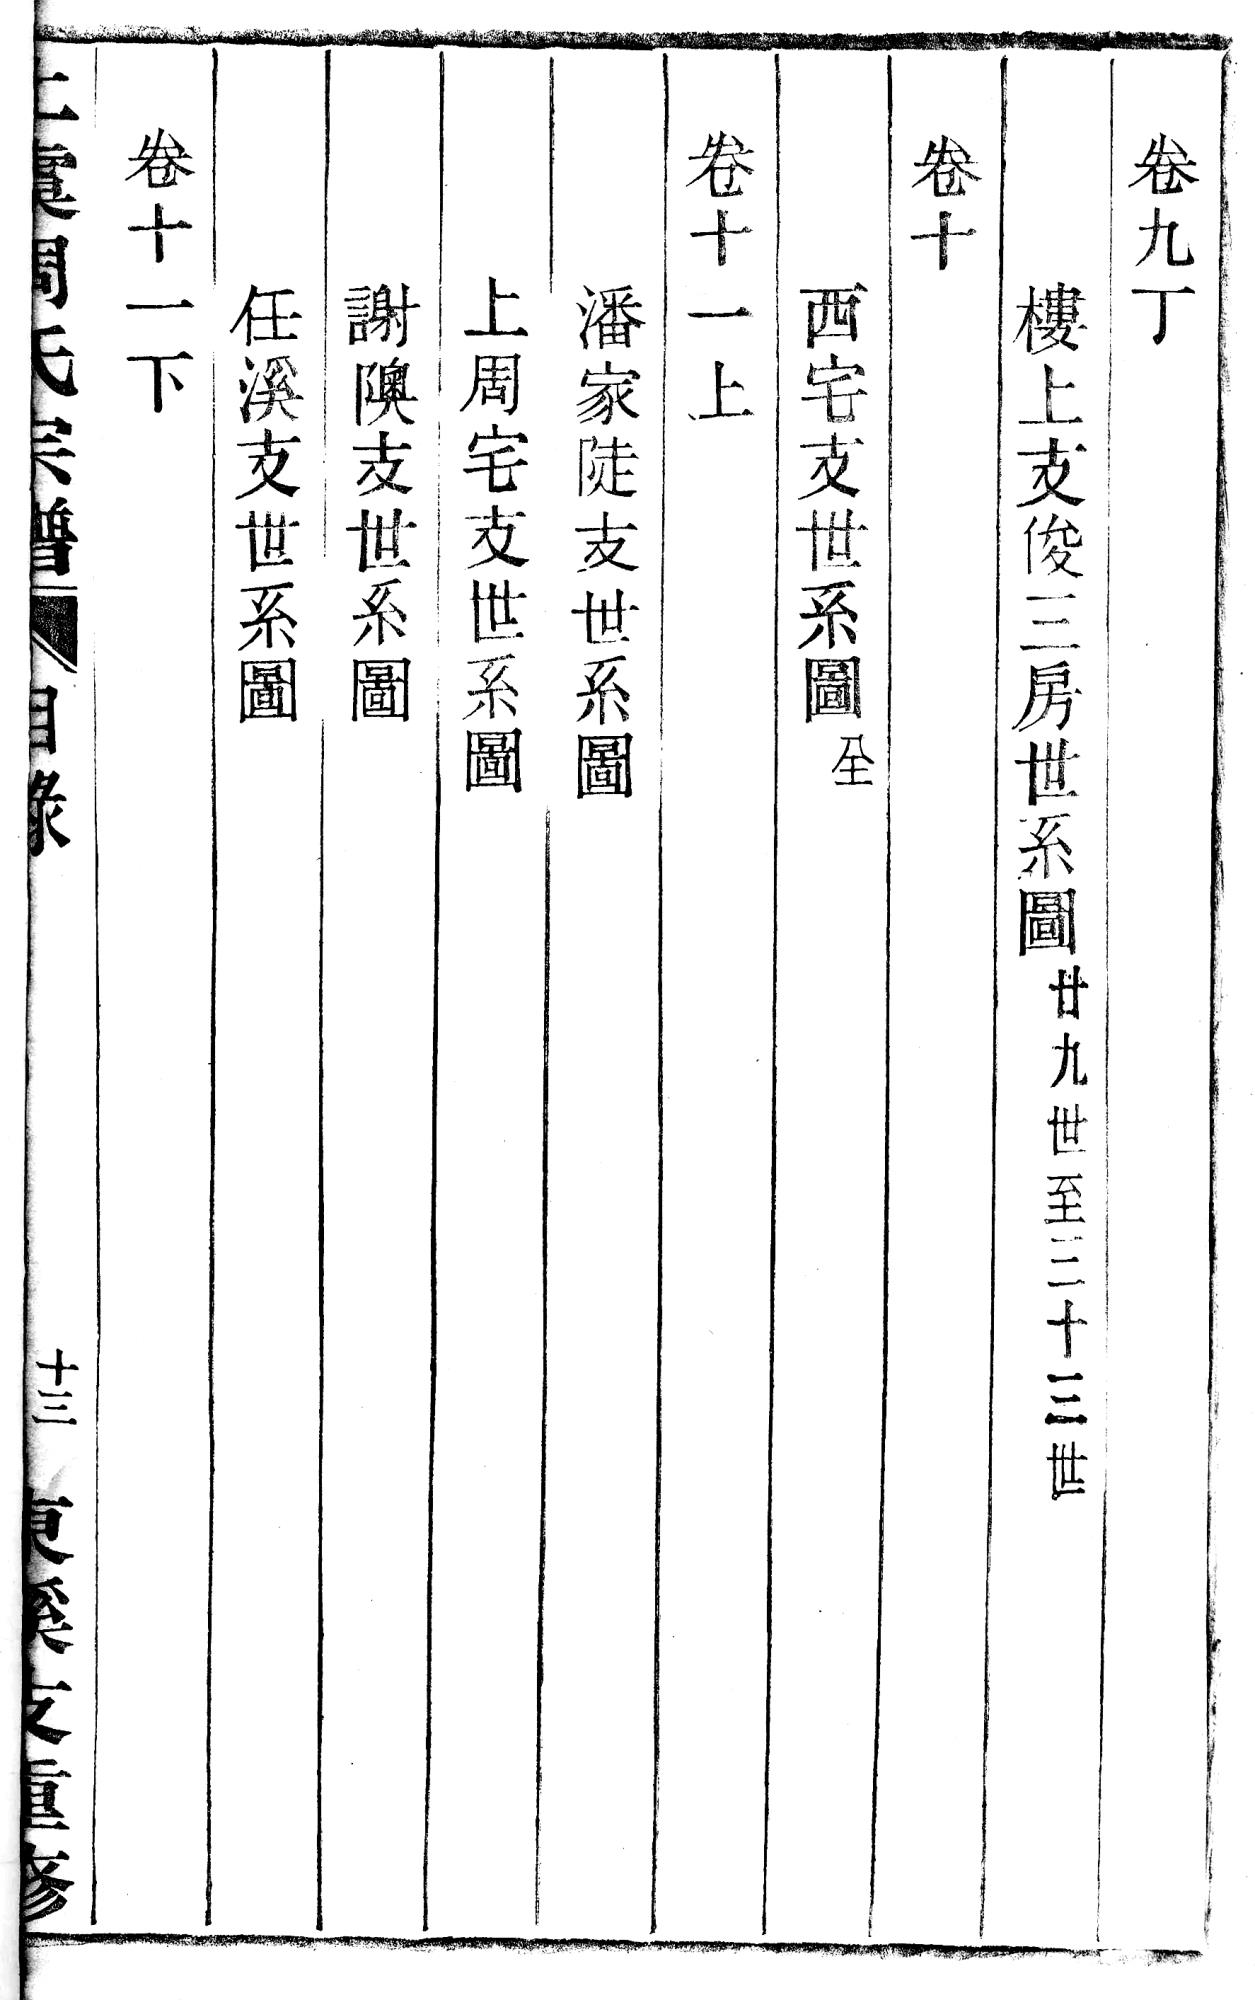 卷九丁
樓上支俊三房世系圖廿九世至三十三世
卷十
西宅支世系圖全
卷十一上
潘家陡支世系圖
上周宅支世系圖
謝隩支世系圖
任溪支世系圖
卷十一下
上虞周氏宗譜 目錄 十三 東溪支重修